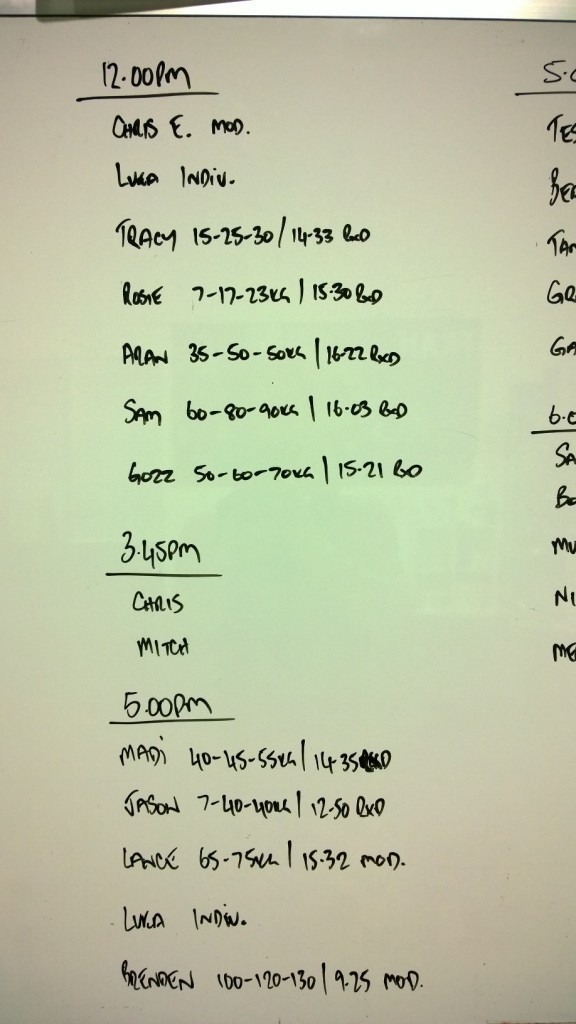 12.00PM
CHRIS E. MOD.
LUKA INDIV.
TRACY 15-25-30 / 14-33 RXD
ROSIE 7-17-23KG | 15.30 RXD
ARAN 35-50-50KG | 16-22 RXD
SAM 60-80-90KG | 16-03 RXD
GOZZ 50-60-70KG | 15-21 RXD
3.45PM
CHRIS
MITCH
5.00PM
MADI 40-45-55KG | 14-35 RXD
JASON 7-40-40KG | 12-50 RXD
LANCE 65-75KG | 15.32 MOD.
LUKA INDIV.
BRENDEN 100-120-130 | 9.25 MOD.
TES
TAM
GR
GA
SA
NI
ME